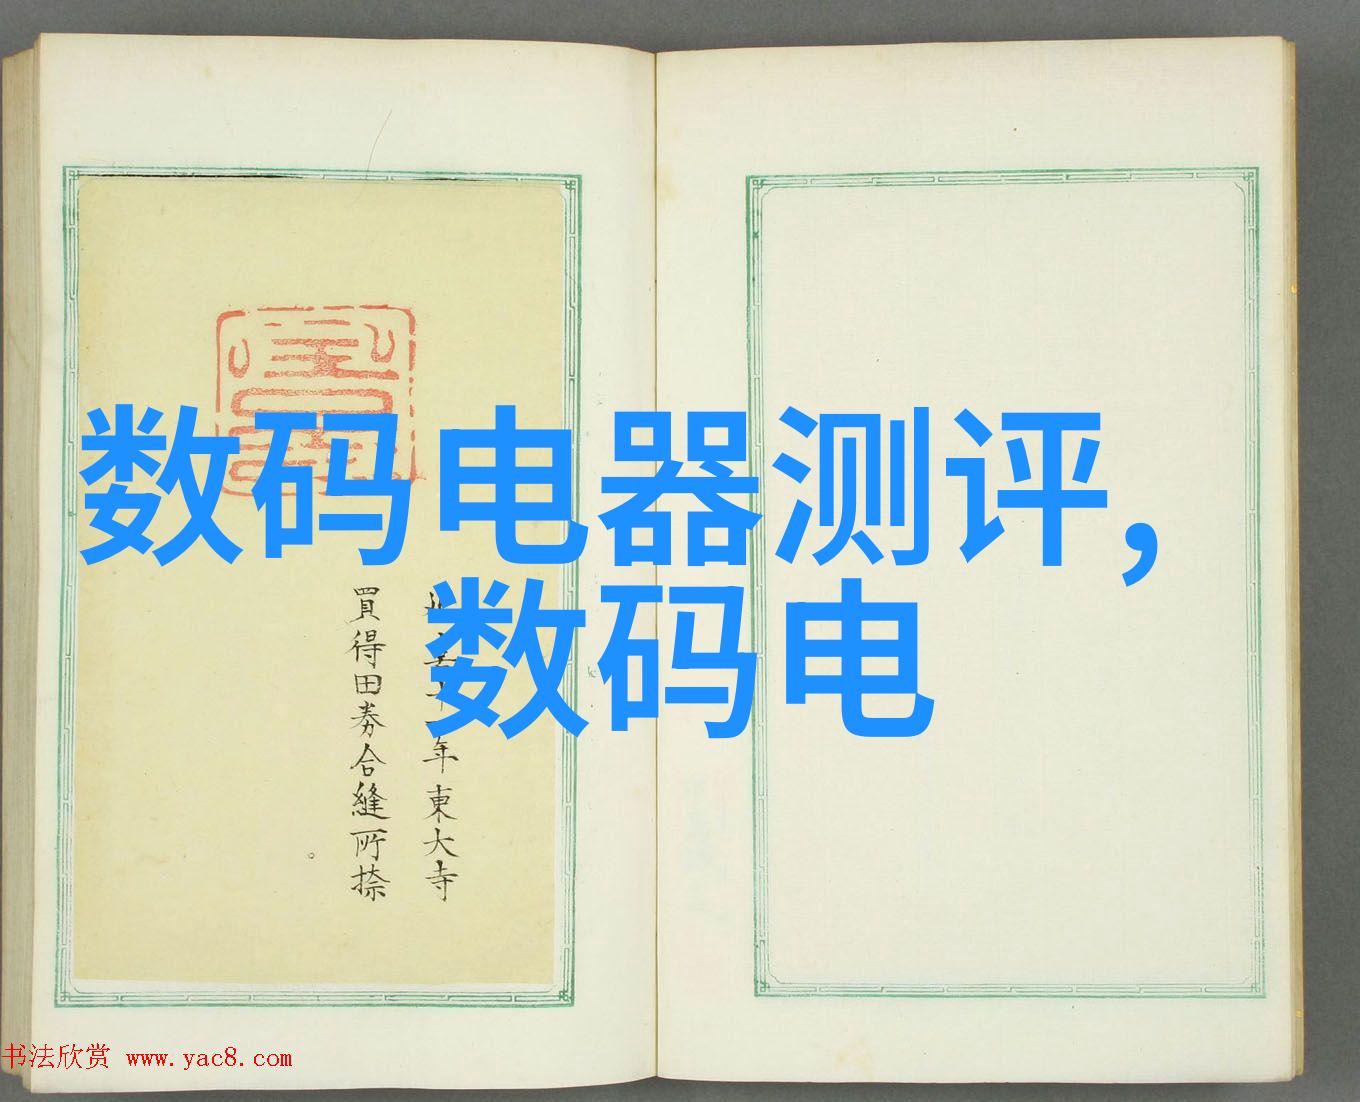 数码电器测评，
数码电
年東大寺
買得田券合縫所捺
书法欣赏 www.yac8.com